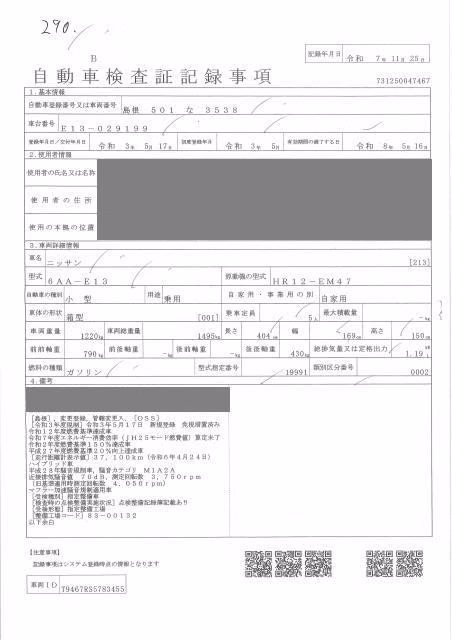 290.
B
記録年月日 令和 7年 11月 25日
自動車検査証記録事項
731250047467
1.基本情報
自動車登録番号又は車両番号 島根 501 な 3538
車台番号 E13-029199
登録年月日/交付年月日 令和 3年 5月 17日 初度登録年月 令和 3年 5月 有効期間の満了する日 令和 8年 5月 16日
2.使用者情報
使用者の氏名又は名称
使用者の住所
使用の本拠の位置
3.車両詳細情報
車名 ニッサン [213]
型式 6AA-E13 原動機の型式 HR12-EM47
自動車の種別 小型 用途 乗用 自家用・事業用の別 自家用
車体の形状 箱型 [001] 乗車定員 5人 最大積載量 -kg
車両重量 1220kg 車両総重量 1495kg 長さ 404cm 幅 169cm 高さ 150cm
前前軸重 790kg 前後軸重 -kg 後前軸重 -kg 後後軸重 430kg 総排気量又は定格出力 1.19 kW L
燃料の種類 ガソリン 型式指定番号 19991 類別区分番号 0002
4.備考
[島根],変更登録,管轄変更入,[OSS]
[令和3年度税制]令和3年5月17日 新規登録 免税措置済み
令和12年度燃費基準達成車
令和7年度エネルギー消費効率(JH25モード燃費値)算定未了
令和2年度燃費基準150%達成車
平成27年度燃費基準20%向上達成車
[走行距離計表示値]37,100km(令和6年4月24日)
ハイブリッド車
平成28年騒音規制車,騒音カテゴリ M1A2A
近接排気騒音値 70dB,測定回転数 3,750rpm
[旧基準適用時測定回転数 4,050rpm]
マフラー加速騒音規制適用車
[受検種別]指定整備車
[検査時の点検整備実施状況]点検整備記録簿記載あり
[受検形態]指定整備工場
[整備工場コード]83-00132
以下余白
【注意事項】
記録事項はシステム登録時点の情報となります
車両ID T9467RS5783455